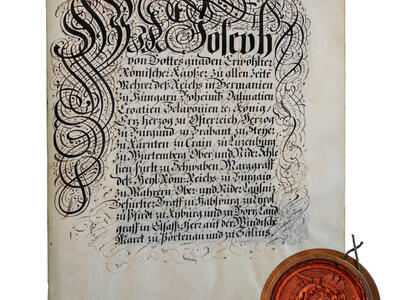 Wir Joseph
von Gottes gnaden Erwöhlter
Römischer Kayßer zu allen Zeite
Mehrer deß Reichs in Germanien
zu Hungarn Böheimb Dalmatien
Croatien Sclavonien ec. König
Ertzherzog zu Österreich Herzog
zu Burgund zu Brabant zu Steyer
zu Kärnten zu Crain zu Luzenburg
zu Würtemberg Ober und Nider Schle
sien Fürst zu Schwaben Marggraff
deß Heyl: Röm: Reichs zu Burgau
zu Mähren Ober und Nider Laußniz
Gefürster Graff zu Habspurg zu Tyrol
zu Pfirdt zu Kyburg und zu Görz Land
graff in Elsaß Herr auf der Windische
Marck zu Portenau und zu Salins.